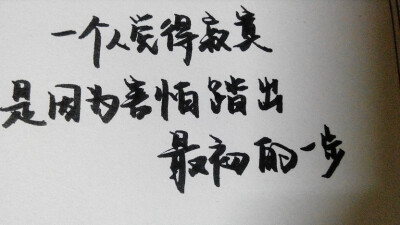 一个人觉得寂寞
是因为害怕踏出
最初的一步